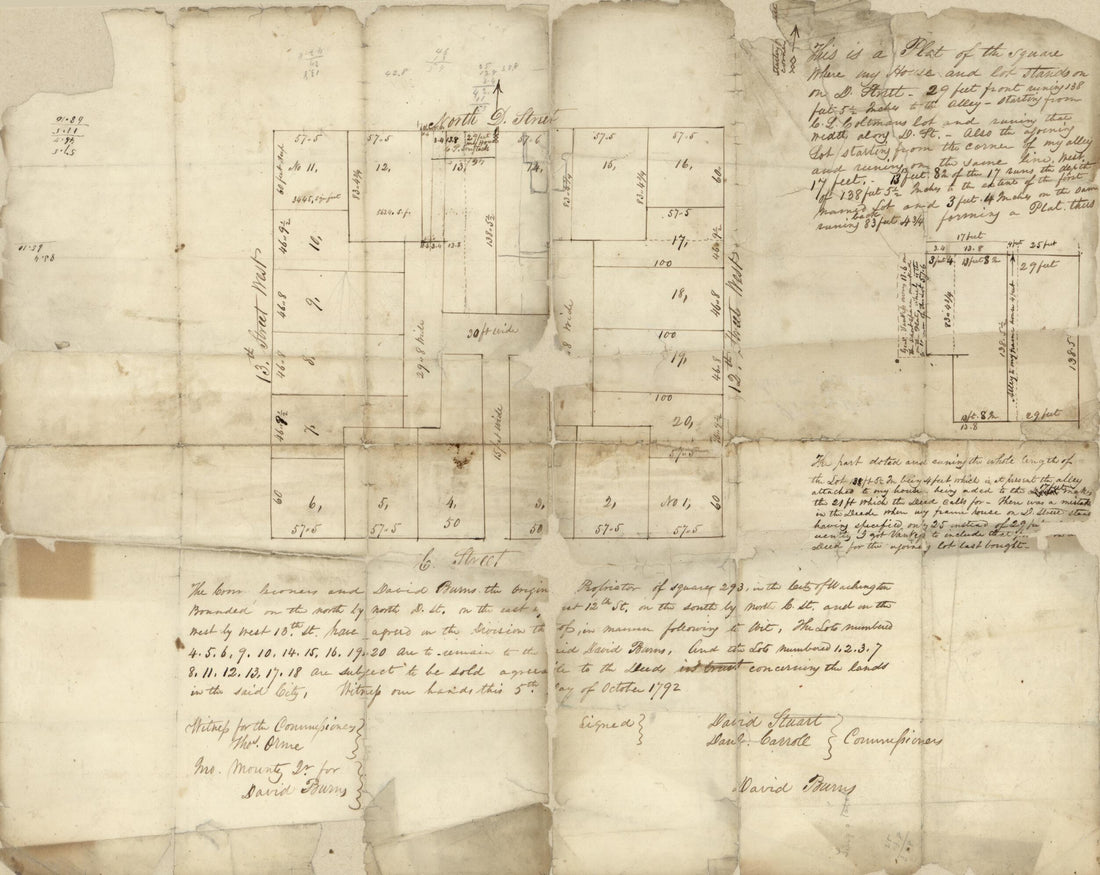 This is a Plat of the square
Where my House and lot stands on
on D. Street - 29 feet front runing 138
feet 5½ Inches to the Alley - starting from
C. L. Coltmans lot and runing that
width along D. St. - Also the ajoining
Lot starting from the corner of my alley
and runing on the same line, West,
17 feet. - 13 feet 8½ of this 17 runs the depth
of 138 feet 5½ Inches to the extent of the first
named Lot and 3 feet 4 Inches on the Dam
runing back 83 feet 4¾ forming a Plat. thus
North D. Street
57-5
57-5
57-6
57-5
57-5
No 11,
12,
13,
14,
15,
16,
60
83-4¾
83-4¾
138-5½
57-5
46-9½
10,
17,
46-9½
100
13th Street West
46-8
9,
18,
46-8
12th Street West
100
30 ft Wide
29-8 Wide
8 Wide
46-8
8,
19,
46-8
100
46-9½
7,
20,
57-5
15 feet Wide
60
6,
5,
4,
3,
2,
No 1,
60
57-5
57-5
50
50
57-5
57-5
C. Street
17 feet
3.4
13.8
4 feet
25 feet
3 feet 4
13 feet 8½
29 feet
83-4¾
138-5½
Alley to my frame house 4 feet
138-5
13 ft. 8½
29 feet
13.8
The part doted and runing the whole length of
the Lot 138 ft 5½ In being 4 feet which is at present the alley
attached to my house being aded to the 17 feet makes
the 21 ft which the Deed calls for - There was a mistake
in the Deede when my frame house on D. Street stands
having specified only 25 instead of 29 fe
I got Vanhep to include that
Deed for the ajoining lot last bought -
The Com sioners and David Burns the origin Proprietor of square 293, in the City of Washington
Bounded on the north by north D. st, on the east st 12th St, on the south by North C. st. and on the
West by West 13th st. have agreed on the Division th of, in manner following to Wit, The Lots numbered
4. 5. 6, 9, 10, 14. 15, 16, 19, 20 are to remain to the id David Burns, And the Lots numbered 1. 2. 3. 7
8, 11, 12, 13, 17, 18 are subject to be sold agreea le to the Deeds in trust concerning the lands
in the said City, Witness our hands this 5th ay of October 1792
Witness for the Commissioners
Thos. Orme
Jno. Mountz Jr. for
David Burns
Signed
David Stuart
Danl. Carroll
Commissioners
David Burns